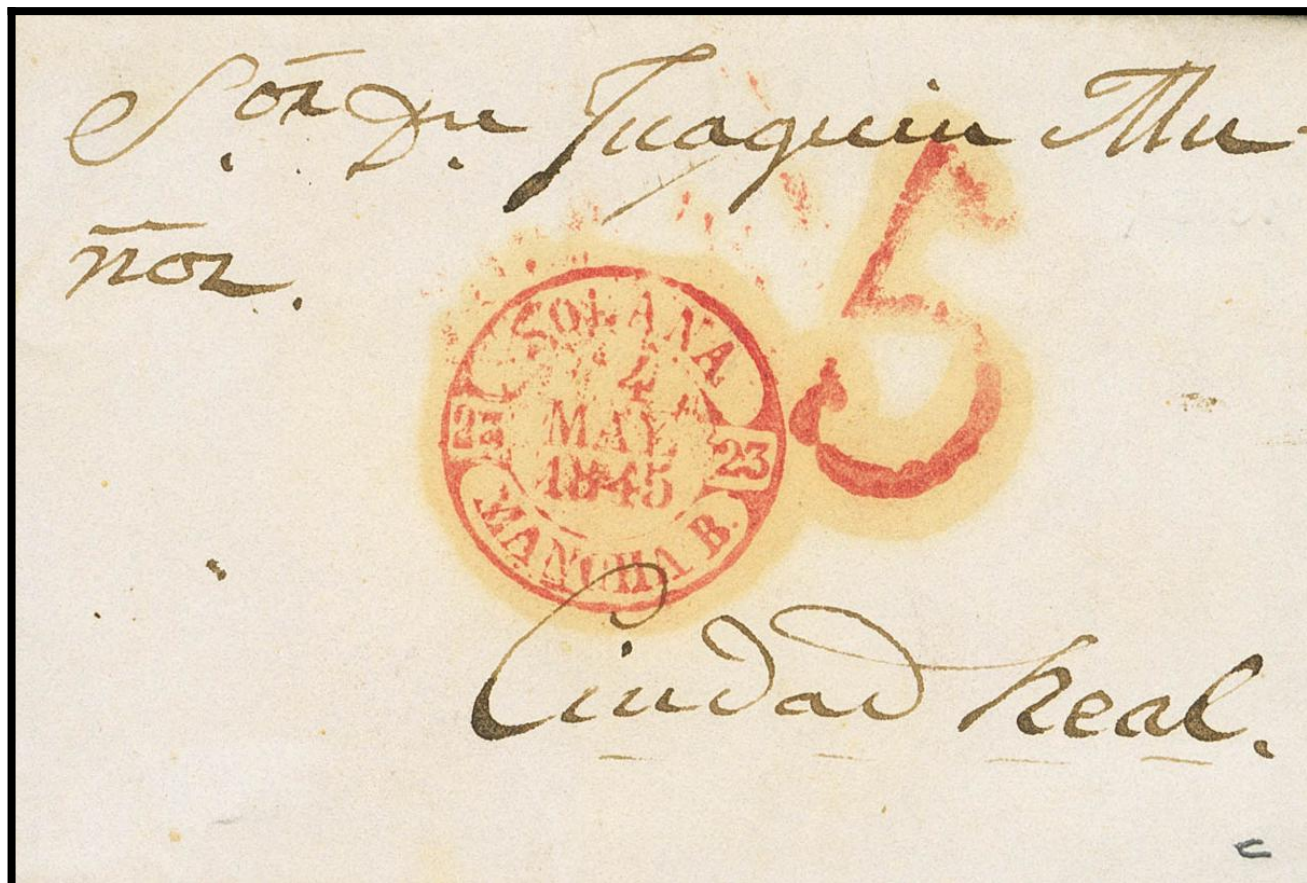 S.or D.n Juaquin Mu-
ñoz.
5
SOLANA
4
MAY.
1845
23
23
MANCHA B.
Ciudad Real.